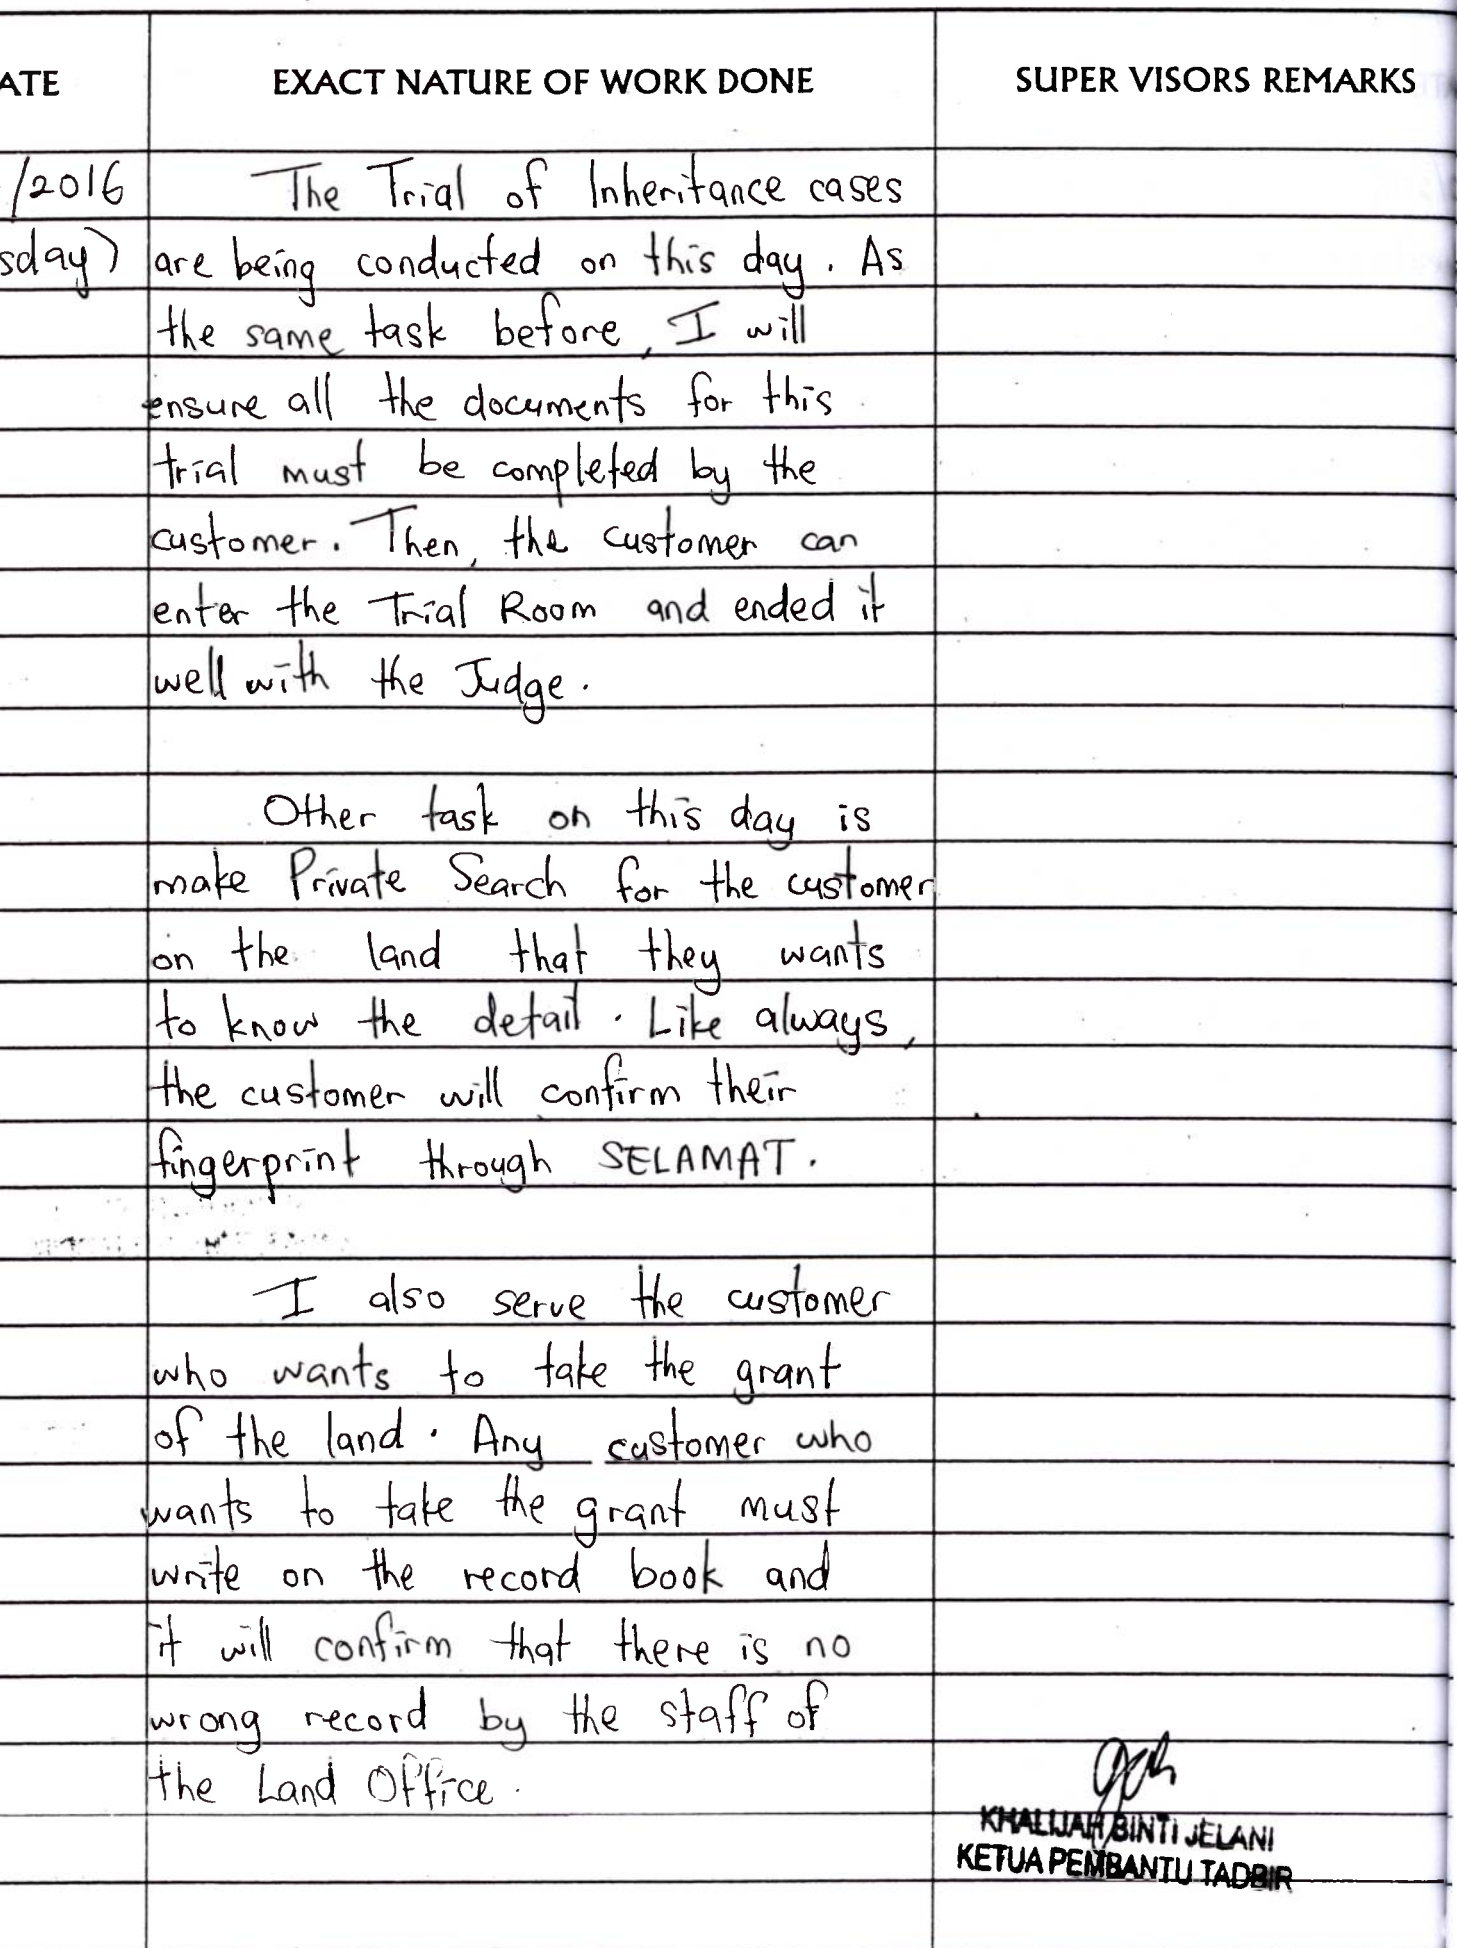 ATE EXACT NATURE OF WORK DONE SUPER VISORS REMARKS
/2016 The Trial of Inheritance cases
sday) are being conducted on this day. As
the same task before, I will
ensure all the documents for this
trial must be completed by the
customer. Then, the customer can
enter the Trial Room and ended it
well with the Judge.
Other task on this day is
make Private Search for the customer
on the land that they wants
to know the detail. Like always,
the customer will confirm their
fingerprint through SELAMAT.
I also serve the customer
who wants to take the grant
of the land. Any customer who
wants to take the grant must
write on the record book and
it will confirm that there is no
wrong record by the staff of
the Land Office.
KHALIJAH BINTI JELANI
KETUA PEMBANTU TADBIR